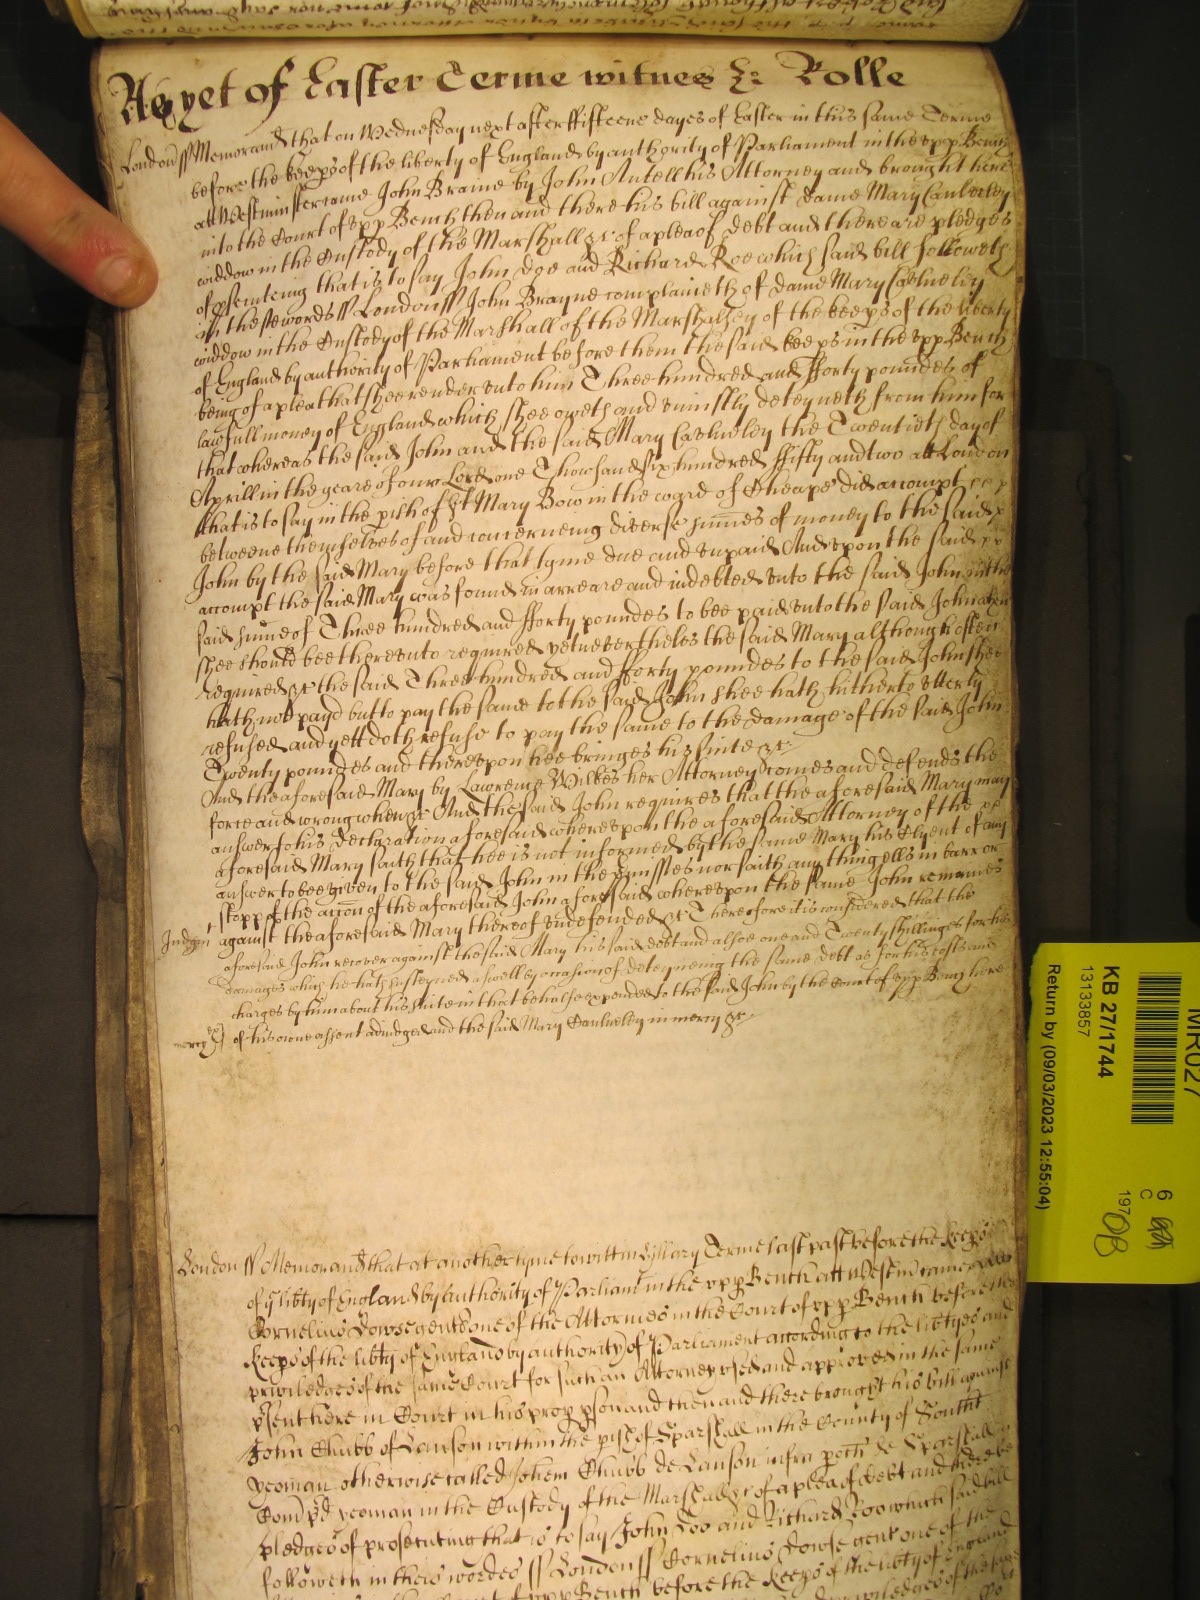 As yet of Easter Terme witnes &c Rolle
London ss Memorand that on Wednesday next after ffifteene dayes of Easter in this same Terme
before the keeps of the liberty of England by authority of Parliament in the upp Bench
att Westminster came John Braine by John Antell his Attorney and brought here
into the Court of upp Bench then and there his bill against Dame Mary Calveley
widdow in the Custody of the Marshall &c of a plea of debt and there are pledges
of psecuteing that is to say John Doe and Richard Roe which said bill followeth
in these words ss London ss John Brayne complaineth of Dame Mary Calveley
widdow in the Custody of the Marshall of the Marshalsey of the keeps of the liberty
of England by authority of Parliament before them the said keeps in the upp Bench
being of a plea that shee render unto him Three hundred and fforty poundes of
lawfull money of England which shee oweth and uniustly deteyneth from him for
that whereas the said John and the said Mary Calveley the Twentieth day of
Aprill in the yeare of our Lord one Thowsand six hundred ffifty and two att London
that is to say in the pish of St Mary Bow in the ward of Cheape did accompt
betweene themselves of and concerneing diverse sumes of money to the said
John by the said Mary before that tyme due and unpaid And upon the said
accompt the said Mary was found in arreare and indebted unto the said John in the
said sume of Three hundred and fforty poundes to bee paid unto the said John when
shee should bee thereunto required yet nevertheles the said Mary although often
required &c the said Three hundred and fforty poundes to the said John shee
hath not payd but to pay the same to the said John shee hath hitherto utterly
refused and yett doth refuse to pay the same to the damage of the said John
Twenty poundes and thereupon hee bringes his suite &c
And the aforesaid Mary by Lawrence Wilkes her Attorney comes and defends the
force and wrong when &c And the said John requires that the aforesaid Mary may
answer to his Declaration aforesaid whereupon the aforesaid Attorney of the
aforesaid Mary saith that hee is not informed by the same Mary his Clyent of any
answer to bee given to the said John in the pmisses nor saith any thing ells in barr or
stopp of the accon of the aforesaid John aforesaid whereupon the same John remaines
against the aforesaid Mary thereof undefended &c Therefore it is considered that the
Judgmt
aforesaid John recover against the said Mary his said debt and alsoe one and Twenty shillinges for his
damages which he hath susteyned aswell by occasion of deteyneing the same debt as for his costs and
charges by him about his suite in that behalfe expended to the said John by the Court of upp Bench here
of his owne assent adiudged and the said Mary Calveley in mercy &c
mercy
London ss Memorand that at another tyme to witt in Hillary Terme last past before the keeps
of ye libty of England by authority of Parliamt in the upp Bench att Westm came
Cornelius Dowse gent one of the Attornies in the Court of upp Bench before the
keeps of the libty of England by authority of Parliament according to the libtyes and
priviledges of the same Court for such an Attorney used and approved in the same
psent here in Court in his prop pson and then and there brought his bill against
John Chubb of Lawson within the pish of Sparsall in the County of Southt
yeoman otherwise called Johem Chubb de Lawson infra poch de
Com pd yeoman in the Custody of the Marshall &c of a plea of debt and there are
pledges of prosecuting that is to say John Doo and Richard Roo which said bill
followeth in theis wordes ss London ss Cornelius Dowse gent one of the
upp Bench before the keeps of the libty of England
priviledges of the
MR027
KB 27/1744
13133857
Return by (09/03/2023 12:55:04)
6
C
197